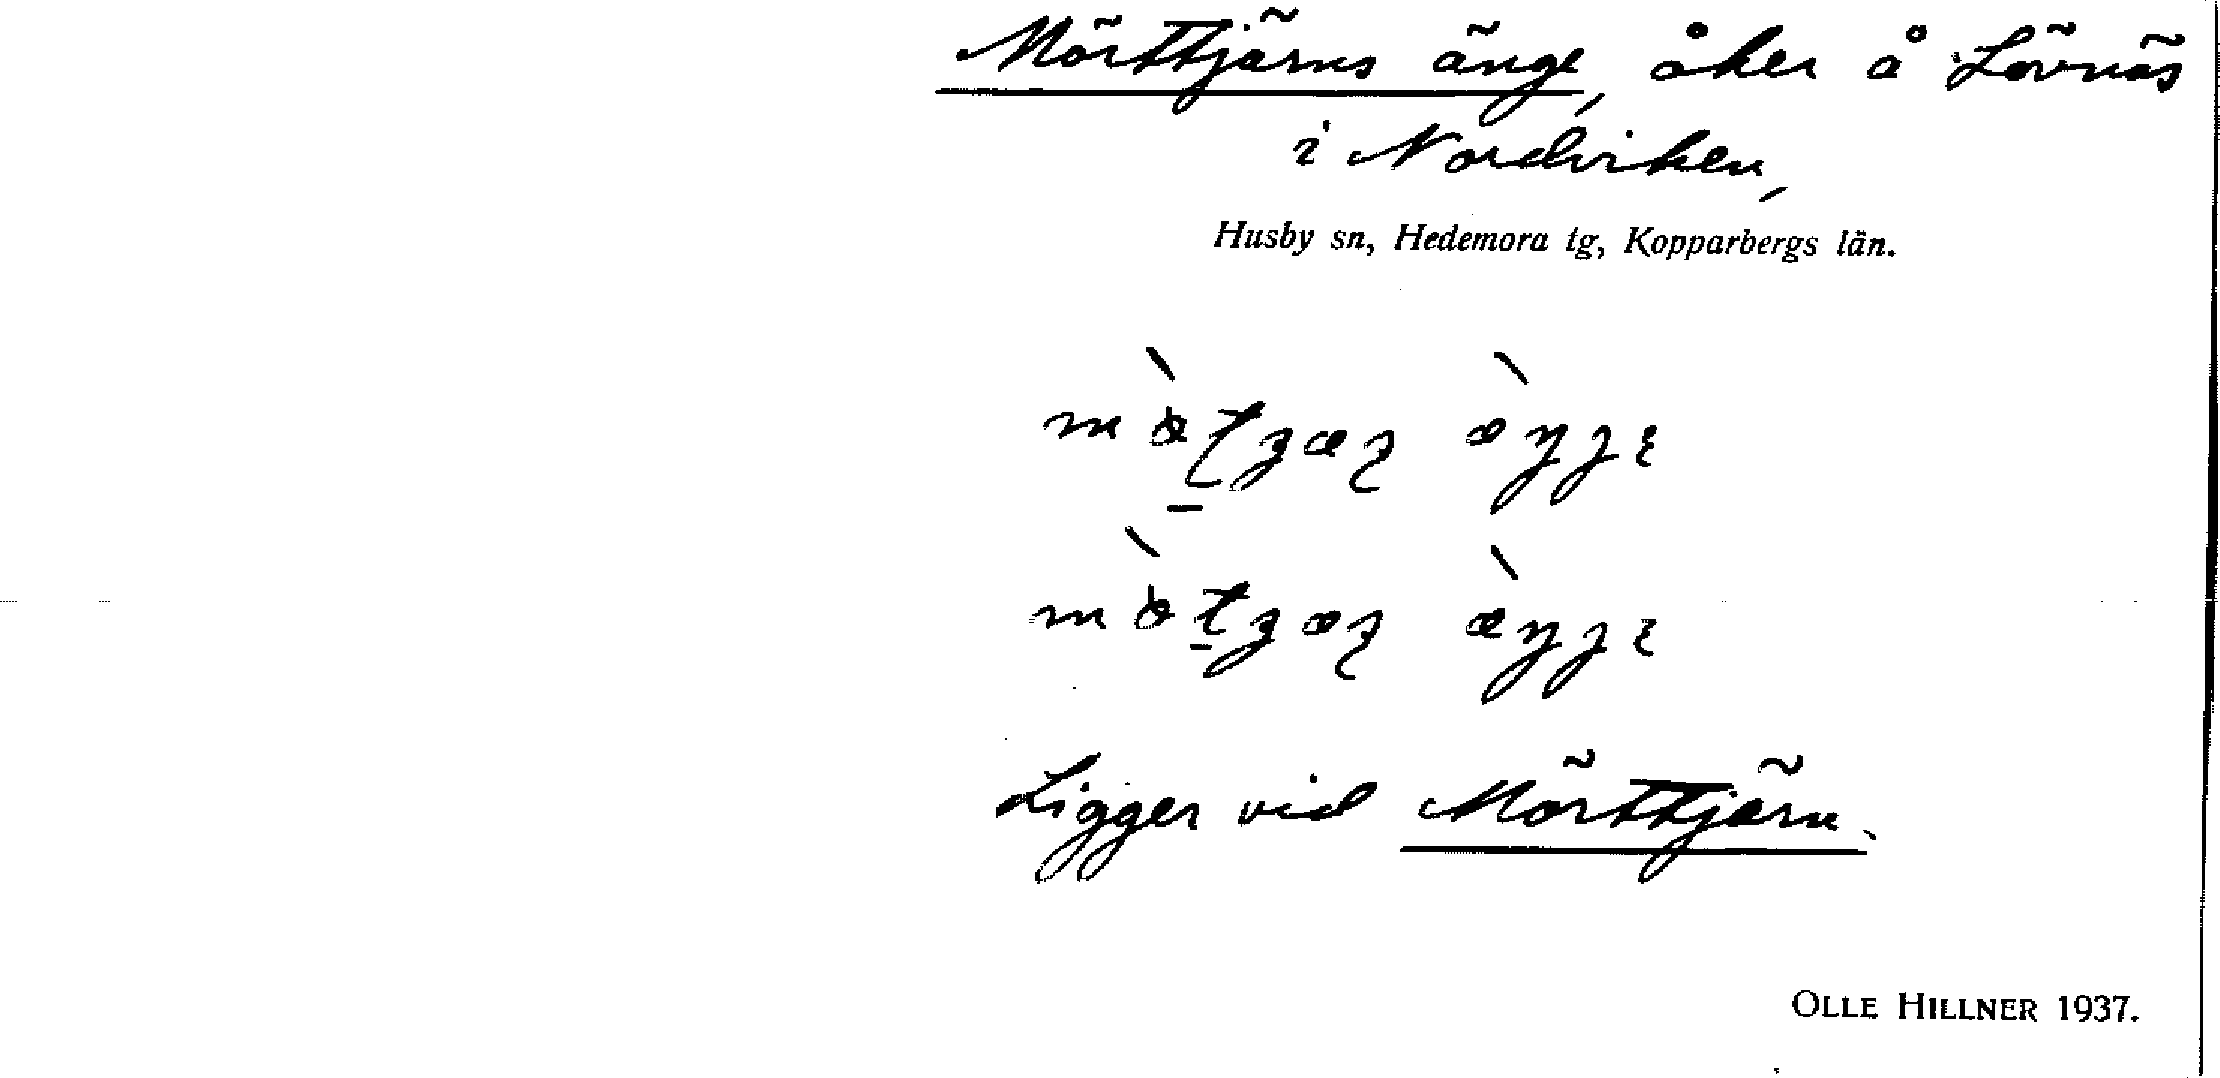 Mörttjärns änge, åker å Lövnäs
i Nordviken,
Husby sn, Hedemora tg, Kopparbergs län.
Ligger vid Mörttjärn.
OLLE HILLNER 1937.